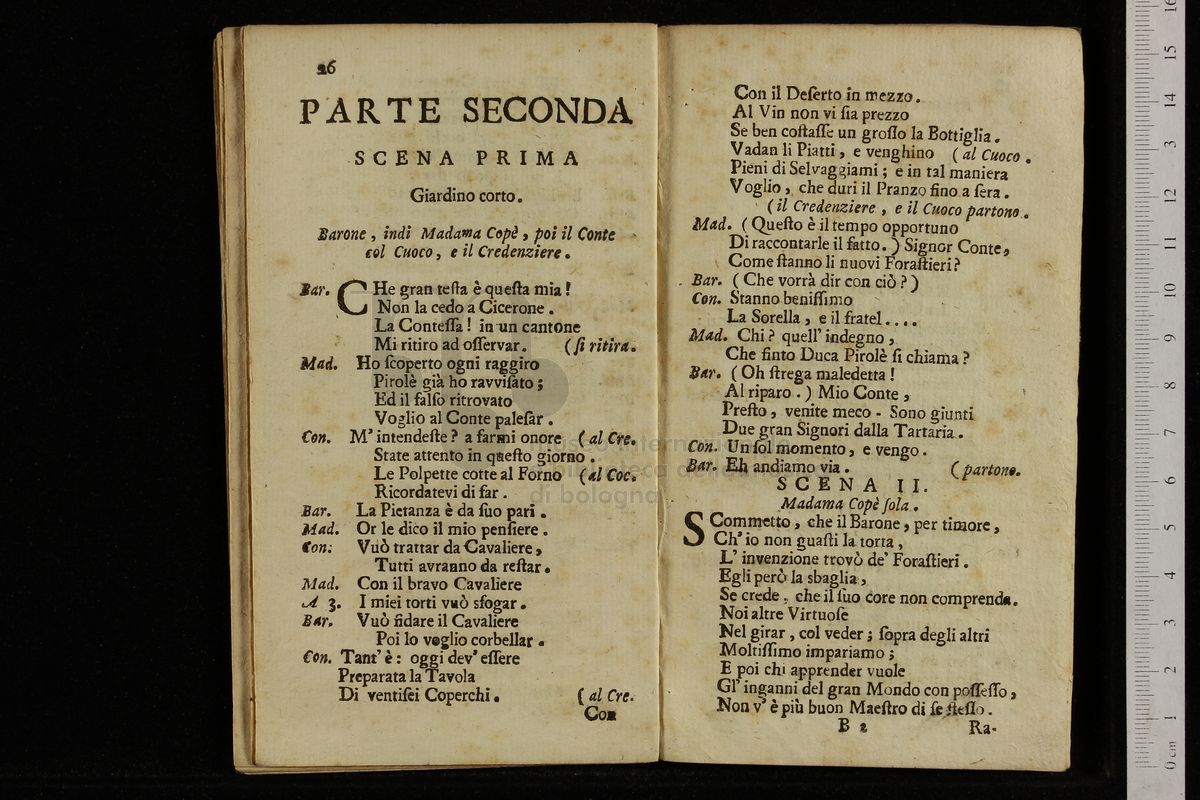 26
PARTE SECONDA
SCENA PRIMA
Giardino corto.
Barone, indi Madama Copè, poi il Conte
col Cuoco, e il Credenziere.
Bar. CHe gran teſta è queſta mia!
Non la cedo a Cicerone.
La Conteſſa! in un cantone
Mi ritiro ad oſſervar. (ſi ritira.
Mad. Ho ſcoperto ogni raggiro
Pirolè già ho ravviſato;
Ed il falſo ritrovato
Voglio al Conte paleſar.
Con. M' intendeſte? a farmi onore (al Cre.
State attento in queſto giorno.
Le Polpette cotte al Forno (al Coc.
Ricordatevi di far.
Bar. La Pietanza è da ſuo pari.
Mad. Or le dico il mio penſiere.
Con. Vuò trattar da Cavaliere,
Tutti avranno da reſtar.
Mad. Con il bravo Cavaliere
A 3. I miei torti vuò sfogar.
Bar. Vuò fidare il Cavaliere
Poi lo voglio corbellar.
Con. Tant' è: oggi dev' eſſere
Preparata la Tavola
Di ventiſei Coperchi. (al Cre.
Con
Con il Deſerto in mezzo.
Al Vin non vi ſia prezzo
Se ben coſtaſſe un groſſo la Bottiglia.
Vadan li Piatti, e venghino (al Cuoco.
Pieni di Selvaggiami; e in tal maniera
Voglio, che duri il Pranzo fino a ſera.
(il Credenziere, e il Cuoco partono.
Mad. (Queſto è il tempo opportuno
Di raccontarle il fatto.) Signor Conte,
Come ſtanno li nuovi Foraſtieri?
Bar. (Che vorrà dir con ciò?)
Con. Stanno beniſſimo
La Sorella, e il fratel....
Mad. Chi? quell' indegno,
Che finto Duca Pirolè ſi chiama?
Bar. (Oh ſtrega maledetta!
Al riparo.) Mio Conte,
Preſto, venite meco - Sono giunti
Due gran Signori dalla Tartaria.
Con. Un ſol momento, e vengo.
Bar. Eh andiamo via. (partono.
SCENA II.
Madama Copè ſola.
SCommetto, che il Barone, per timore,
Ch' io non guaſti la torta,
L' invenzione trovò de' Foraſtieri.
Egli però la sbaglia,
Se crede, che il ſuo core non comprenda.
Noi altre Virtuoſe
Nel girar, col veder; ſopra degli altri
Moltiſſimo impariamo;
E poi chi apprender vuole
Gl' inganni del gran Mondo con poſſeſſo,
Non v' è più buon Maeſtro di ſe ſteſſo.
B 2 Ra-
di bologna